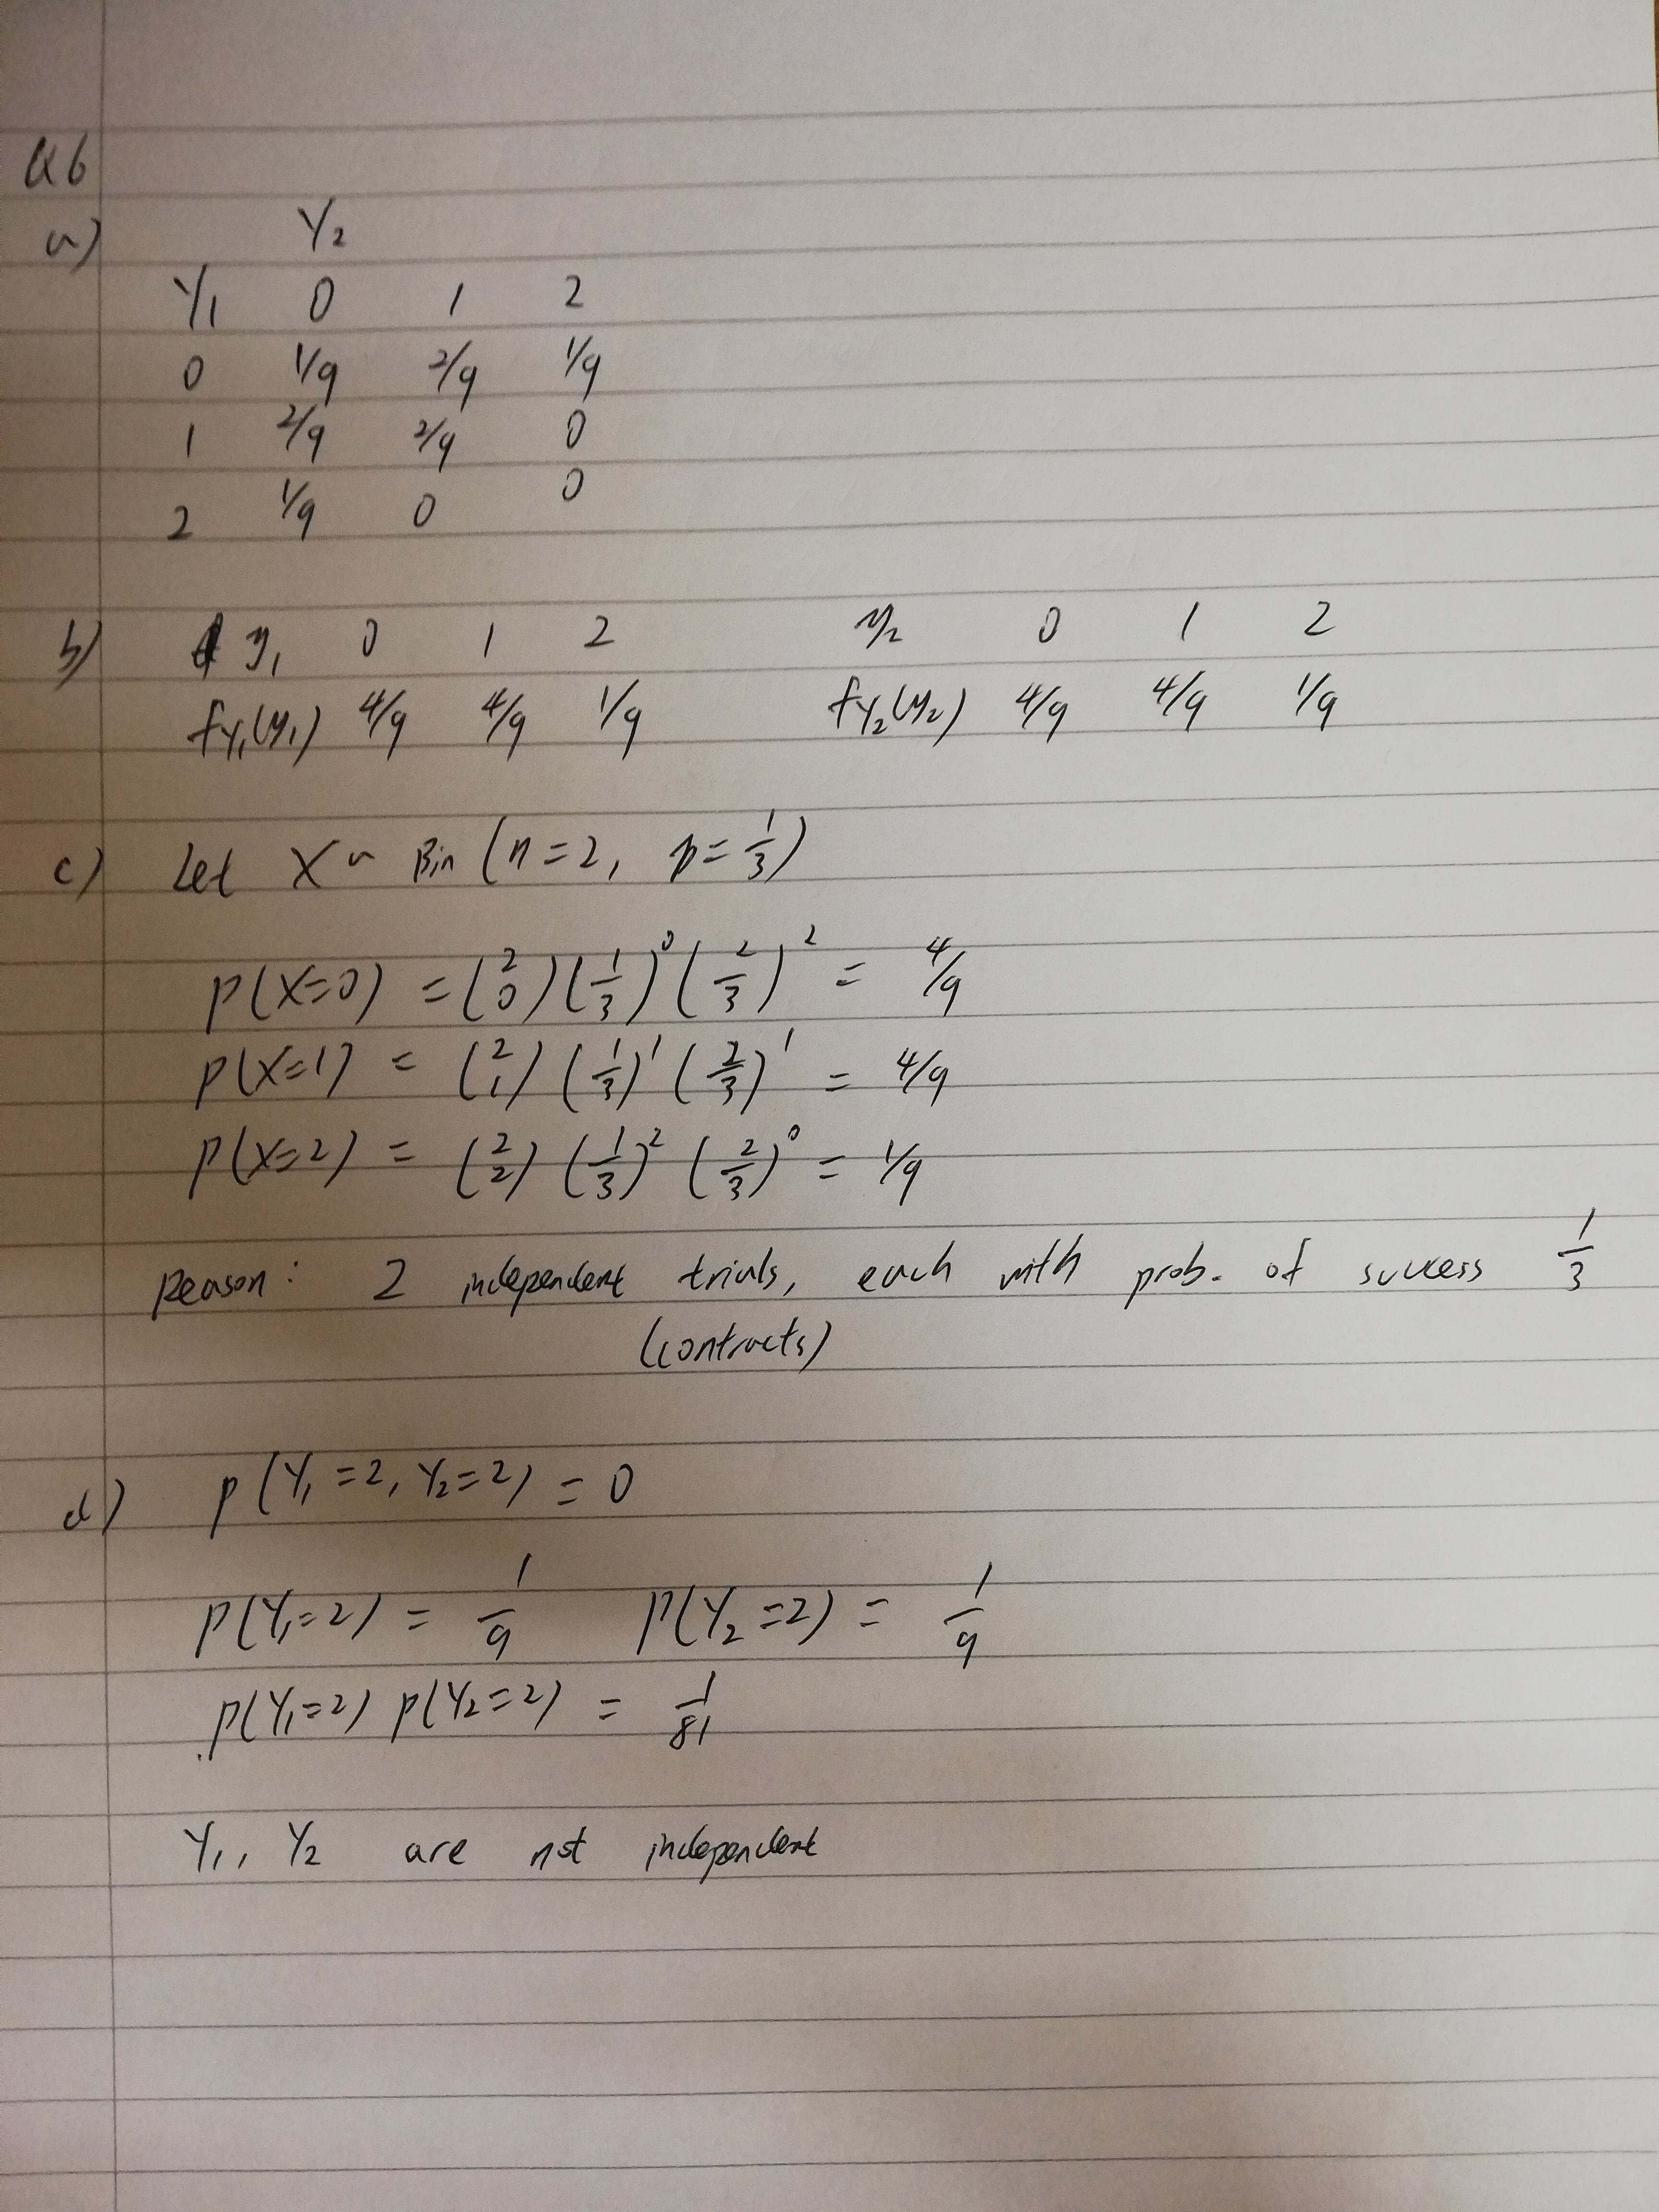 Q6
a) Y₂
Y₁ 0 1 2
0 1/9 2/9 1/9
1 2/9 2/9 0
2 1/9 0 0
b) y₁ 0 1 2 y₂ 0 1 2
fY₁(y₁) 4/9 4/9 1/9 fY₂(y₂) 4/9 4/9 1/9
c) Let X ~ Bin (n=2, p=1/3)
P(X=0) = (2 0) (1/3)⁰ (2/3)² = 4/9
P(X=1) = (2 1) (1/3)¹ (2/3)¹ = 4/9
P(X=2) = (2 2) (1/3)² (2/3)⁰ = 1/9
Reason: 2 independent trials, each with prob. of success 1/3
(contracts)
d) P(Y₁=2, Y₂=2) = 0
P(Y₁=2) = 1/9 P(Y₂=2) = 1/9
P(Y₁=2) P(Y₂=2) = 1/81
Y₁, Y₂ are not independent